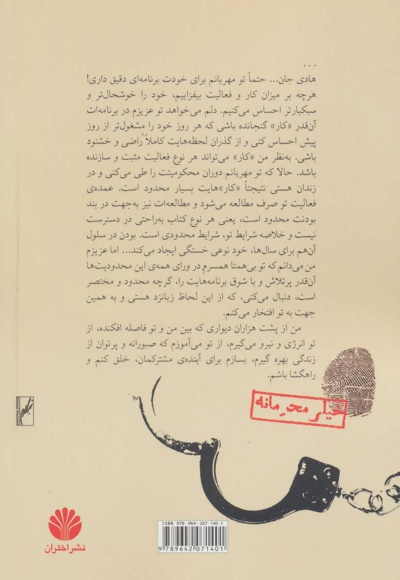 ...
هادی جان... حتماً تو مهربانم برای خودت برنامه‌ای دقیق داری!
هرچه بر میزان کار و فعالیت بیفزاییم، خود را خوشحال‌تر و
سبکبارتر احساس می‌کنیم. دلم می‌خواهد تو عزیزم در برنامه‌ات
آن‌قدر «کار» گنجانده باشی که هر روز خود را مشغول‌تر از روز
پیش احساس کنی و از گذران لحظه‌هایت کاملاً راضی و خشنود
باشی. به‌نظر من «کار» می‌تواند هر نوع فعالیت مثبت و سازنده
باشد. حالا که تو مهربانم دوران محکومیتت را طی می‌کنی و در
زندان هستی نتیجتاً «کار»هایت بسیار محدود است. عمده‌ی
فعالیت تو صرف مطالعه می‌شود و مطالعه‌ات نیز به‌جهت در بند
بودنت محدود است، یعنی هر نوع کتاب به‌راحتی در دسترست
نیست و خلاصه شرایط تو، شرایط محدودی است. بودن در سلول
آن‌هم برای سال‌ها، خود نوعی خستگی ایجاد می‌کند... اما عزیزم
من می‌دانم که تو بی‌همتا همسرم در ورای همه‌ی این محدودیت‌ها
آن‌قدر پرتلاش و با شوق برنامه‌هایت را، گرچه محدود و مختصر
است، دنبال می‌کنی، که از این لحاظ زبانزد هستی و به همین
جهت به تو افتخار می‌کنم.
من از پشت هزاران دیواری که بین من و تو فاصله افکنده، از
تو انرژی و نیرو می‌گیرم، از تو می‌آموزم که صبورانه و پرتوان از
زندگی بهره گیرم، بسازم برای آینده‌ی مشترکمان، خلق کنم و
راهگشا باشم.
خیلی محرمانه
نشر اختران
ISBN: 978-964-207-140-1
9789642071401